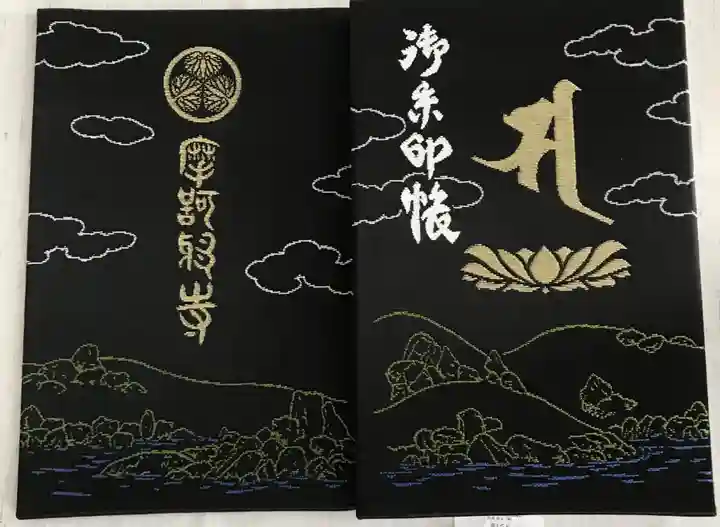 摩訶耶寺
御朱印帳